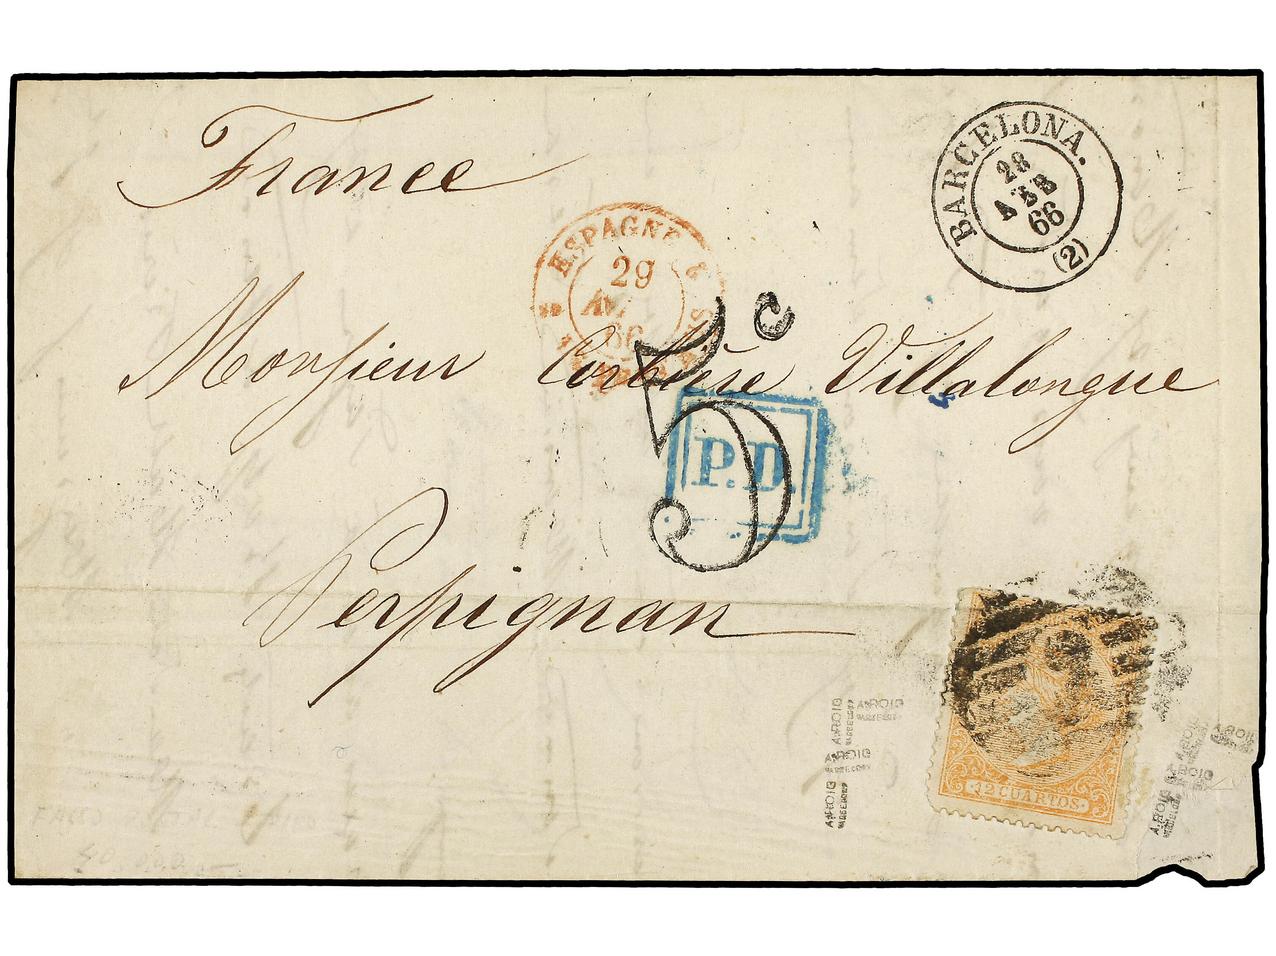 France
BARCELONA.
28
ABR
66
(2)
ESPAGNE
29
66
5c
Monsieur Corbière Villalongue
P.D.
Perpignan
12 CUARTOS
A.ROIG
A.ROIG
A.ROIG
A.ROIG
A.ROIG
A.ROIG
A.ROIG